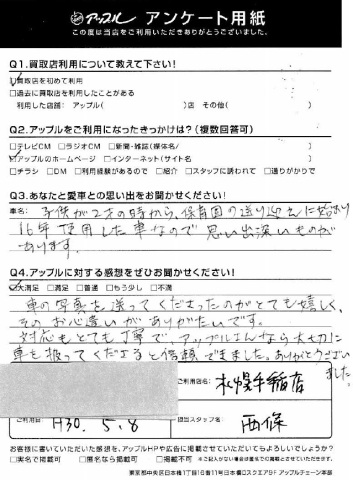 アップル アンケート用紙
この度は当店をご利用いただきありがとうございました。
Q1.買取店利用について教えて下さい!
☑買取店を初めて利用
□過去に買取店を利用したことがある
利用した店舗:アップル( )店 その他( )
Q2.アップルをご利用になったきっかけは?(複数回答可)
□テレビCM □ラジオCM □新聞・雑誌(媒体名/ )
☑アップルのホームページ □インターネット(サイト名 )
□チラシ □DM □利用経験があるので □紹介 □スタッフに誘われて □通りがかりで
Q3.あなたと愛車との思い出をお聞かせください!
車名: 子供が2才の時から、保育園の送り迎えに始まり
16年使用した車なので思い出深いものが
あります。
Q4.アップルに対する感想をぜひお聞かせください!
☑大満足 □満足 □普通 □もう少し □不満
車の写真を送ってくださったのがとても嬉しく、
そのお心遣いがありがたいです。
対応もとても丁寧で、アップルさんなら大切に
車も扱ってくださると信頼できました。ありがとうござい
ました。
ご利用店名: 札幌手稲店
ご利用日 H30.5.8
担当スタッフ名: 西條
お客様に書いていただいた感想を、アップルHPや広告に掲載させていただいてもよろしいでしょうか?
□実名で掲載可 □匿名なら掲載可 □掲載不可 ※ご記入がない場合は匿名での掲載とさせていただきます。
東京都中央区日本橋1丁目16番11号日本橋Dスクエア5F アップルチェーン本部